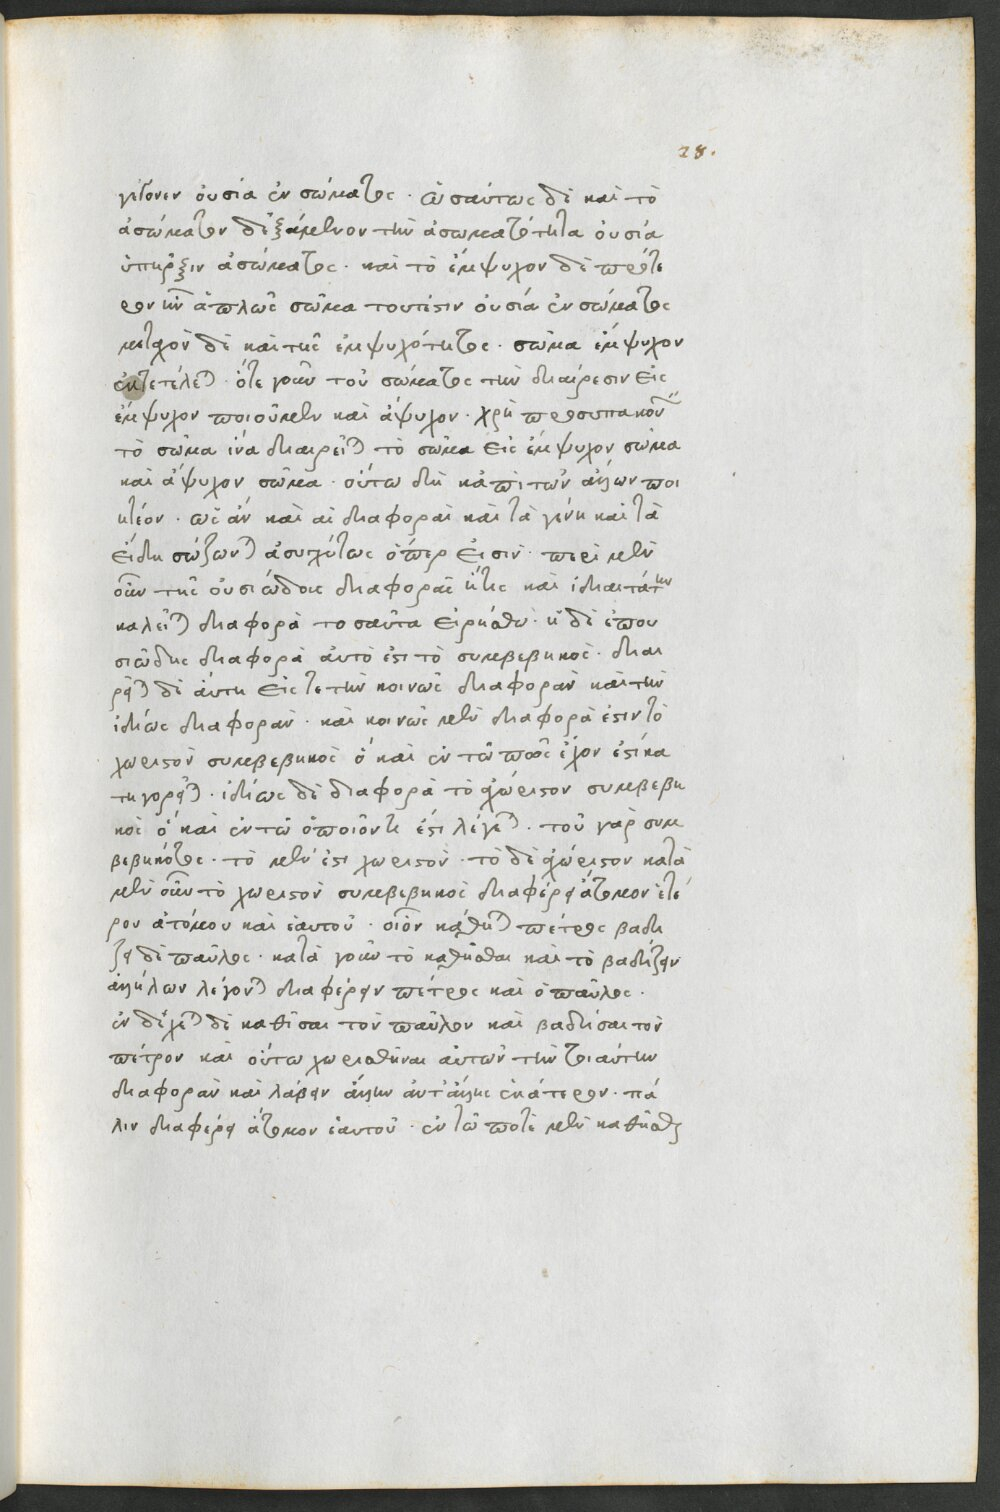 28.
γέγονεν οὐσία ἐν σώματος · ὡσαύτως δὲ καὶ τὸ
ἀσώματον δεξάμενον τὴν ἀσωματότητα οὐσία
ὑπῆρξεν ἀσώματος · καὶ τὸ ἔμψυχον δὲ πρότε
ρον ἦν ἁπλῶς σῶμα τουτέστιν οὐσία ἐν σώματος
μετασχὸν δὲ καὶ τῆς ἐμψυχότητος · σῶμα ἔμψυχον
ἐκτετέλε) · ὅτε γοῦν τοῦ σώματος τὴν διαίρεσιν εἰς
ἔμψυχον ποιοῦμεν καὶ ἄψυχον · χρὴ προσυπακού
τὸ σῶμα ἵνα διαιρεῖ) τὸ σῶμα εἰς ἔμψυχον σῶμα
καὶ ἄψυχον σῶμα · οὕτω δὴ κἀπὶ τῶν ἄλλων ποι
ητέον · ὡς ἂν καὶ αἱ διαφοραὶ καὶ τὰ γένη καὶ τὰ
εἴδη σώζων) ἀσυγχύτως ὅπερ εἰσίν · περὶ μὲν
οὖν τῆς οὐσιώδους διαφορᾶς ἥτις καὶ ἰδιαιτάτη
καλεῖ) διαφορὰ τοσαῦτα εἰρήσθω · ἡ δὲ ἐπου
σιώδης διαφορὰ αὐτό ἐστι τὸ συμβεβηκός · διαι
ρεῖ) δὲ αὕτη εἴς τε τὴν κοινῶς διαφορὰν καὶ τὴν
ἰδίως διαφοράν · καὶ κοινῶς μὲν διαφορά ἐστιν τὸ
χωριστὸν συμβεβηκὸς ὃ καὶ ἐν τῶ πῶς ἔχον ἐστὶ κα
τηγορεῖ) · ἰδίως δὲ διαφορὰ τὸ ἀχώριστον συμβεβη
κὸς ὃ καὶ ἐν τῶ ὁποῖόν τί ἐστι λέγε) · τοῦ γὰρ συμ
βεβηκότος · τὸ μέν ἐστι χωριστόν · τὸ δὲ ἀχώριστον κατὰ
μὲν οὖν τὸ χωριστὸν συμβεβηκὸς διαφέρει ἄτομον ἑτέ
ρου ἀτόμου καὶ ἑαυτοῦ · οἷον κάθη) πέτρος βαδί
ζει δὲ παῦλος · κατὰ γοῦν τὸ καθῆσθαι καὶ τὸ βαδίζειν
ἀλλήλων λέγον) διαφέρειν πέτρος καὶ ὁ παῦλος ·
ἐνδέχε) δὲ καθίσαι τὸν παῦλον καὶ βαδίσαι τὸν
πέτρον καὶ οὕτω χωρισθῆναι αὐτῶν τὴν τοιαύτην
διαφορὰν καὶ λαβεῖν ἄλλην ἀντ' ἄλλης ἑκάτερον · πά
λιν διαφέρει ἄτομον ἑαυτοῦ · ἐν τῶ ποτὲ μὲν καθῆσθαι